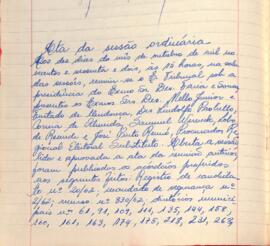 Ata da sessão ordinária
Aos dez dias do mês de outubro de mil no-
vecentos e sessenta e dois, às 15 horas, na sala
das sessões, reuniu-se o E. Tribunal, sob a
presidência do Exmo Sr. Des. Faria e Sousa,
presentes os Exmos Srs. Des. Mello Júnior e
Furtado de Mendonça, Drs. Ludolfo
Corrêa de Almeida, Samuel Werneck, Lobo
de Resende e José Pinto Renó, Procurador Re-
gional Eleitoral Substituto. Aberta a sessão,
lida e aprovada a ata da reunião anterior,
foram publicados os acórdãos proferidos
nos seguintes feitos: Registro de candida-
to nº 20/62; mandado de segurança nº
2/62; recurso nº 330/62; diretórios munici-
pais nº 61, 91, 109, 111, 135, 144, 158,
160, 161, 163, 174, 175, 213, 231, 263